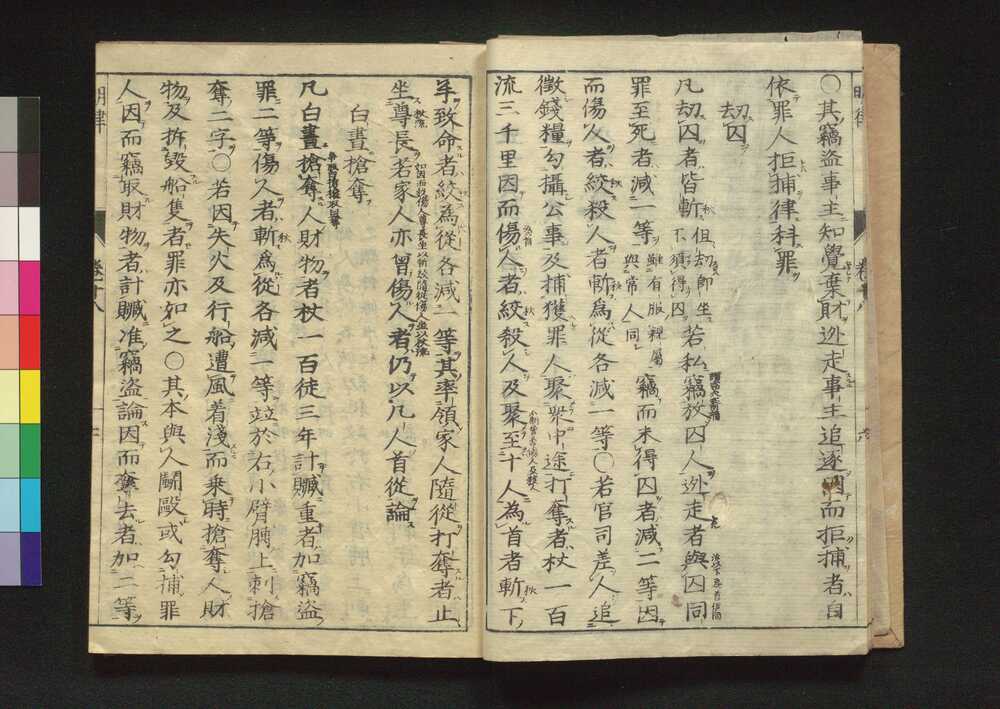 ○其竊盗事主知覺棄財迯走事主追逐因而拒捕者自
依罪人拒捕律科罪
刧囚
凡刧囚者皆斬但刧即坐不須得囚若私竊放囚人迯走者與囚同
罪至死者減一等雖有服親屬與常人同竊而未得囚者減二等因
而傷人者絞殺人者斬為從各減一等○若官司差人追
徵錢糧勾攝公事及捕獲罪人聚衆中途打奪者杖一百
流三千里因而傷人者絞殺人及聚至十人為首者斬下
手致命者絞為從各減一等其率領家人隨從打奪者止
坐尊長若家人亦曾傷人者仍以凡人首從論
白晝搶奪
凡白晝搶奪人財物者杖一百徒三年計贓重者加竊盗
罪二等傷人者斬為從各減一等竝於右小臂膊上刺搶
奪二字○若因失火及行船遭風着淺而乗時搶奪人財
物及拆毀船隻者罪亦如之○其本與人鬭毆或勾捕罪
人因而竊取財物者計贓准竊盗論因而奪去者加二等
明律
卷十八